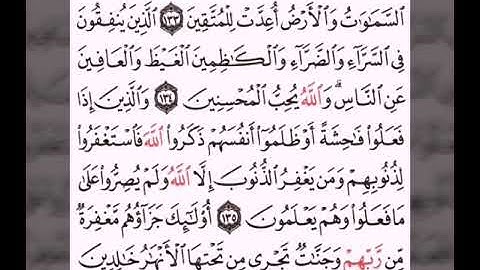 ٱلسَّمَٰوَٰتُ وَٱلْأَرْضُ أُعِدَّتْ لِلْمُتَّقِينَ ١٣٣ ٱلَّذِينَ يُنفِقُونَ
فِي ٱلسَّرَّآءِ وَٱلضَّرَّآءِ وَٱلْكَٰظِمِينَ ٱلْغَيْظَ وَٱلْعَافِينَ
عَنِ ٱلنَّاسِۗ وَٱللَّهُ يُحِبُّ ٱلْمُحْسِنِينَ ١٣٤ وَٱلَّذِينَ إِذَا
فَعَلُوا۟ فَٰحِشَةً أَوْ ظَلَمُوٓا۟ أَنفُسَهُمْ ذَكَرُوا۟ ٱللَّهَ فَٱسْتَغْفَرُوا۟
لِذُنُوبِهِمْ وَمَن يَغْفِرُ ٱلذُّنُوبَ إِلَّا ٱللَّهُ وَلَمْ يُصِرُّوا۟ عَلَىٰ
مَا فَعَلُوا۟ وَهُمْ يَعْلَمُونَ ١٣٥ أُو۟لَٰٓئِكَ جَزَآؤُهُم مَّغْفِرَةٌ
مِّن رَّبِّهِمْ وَجَنَّٰتٌ تَجْرِي مِن تَحْتِهَا ٱلْأَنْهَٰرُ خَٰلِدِينَ